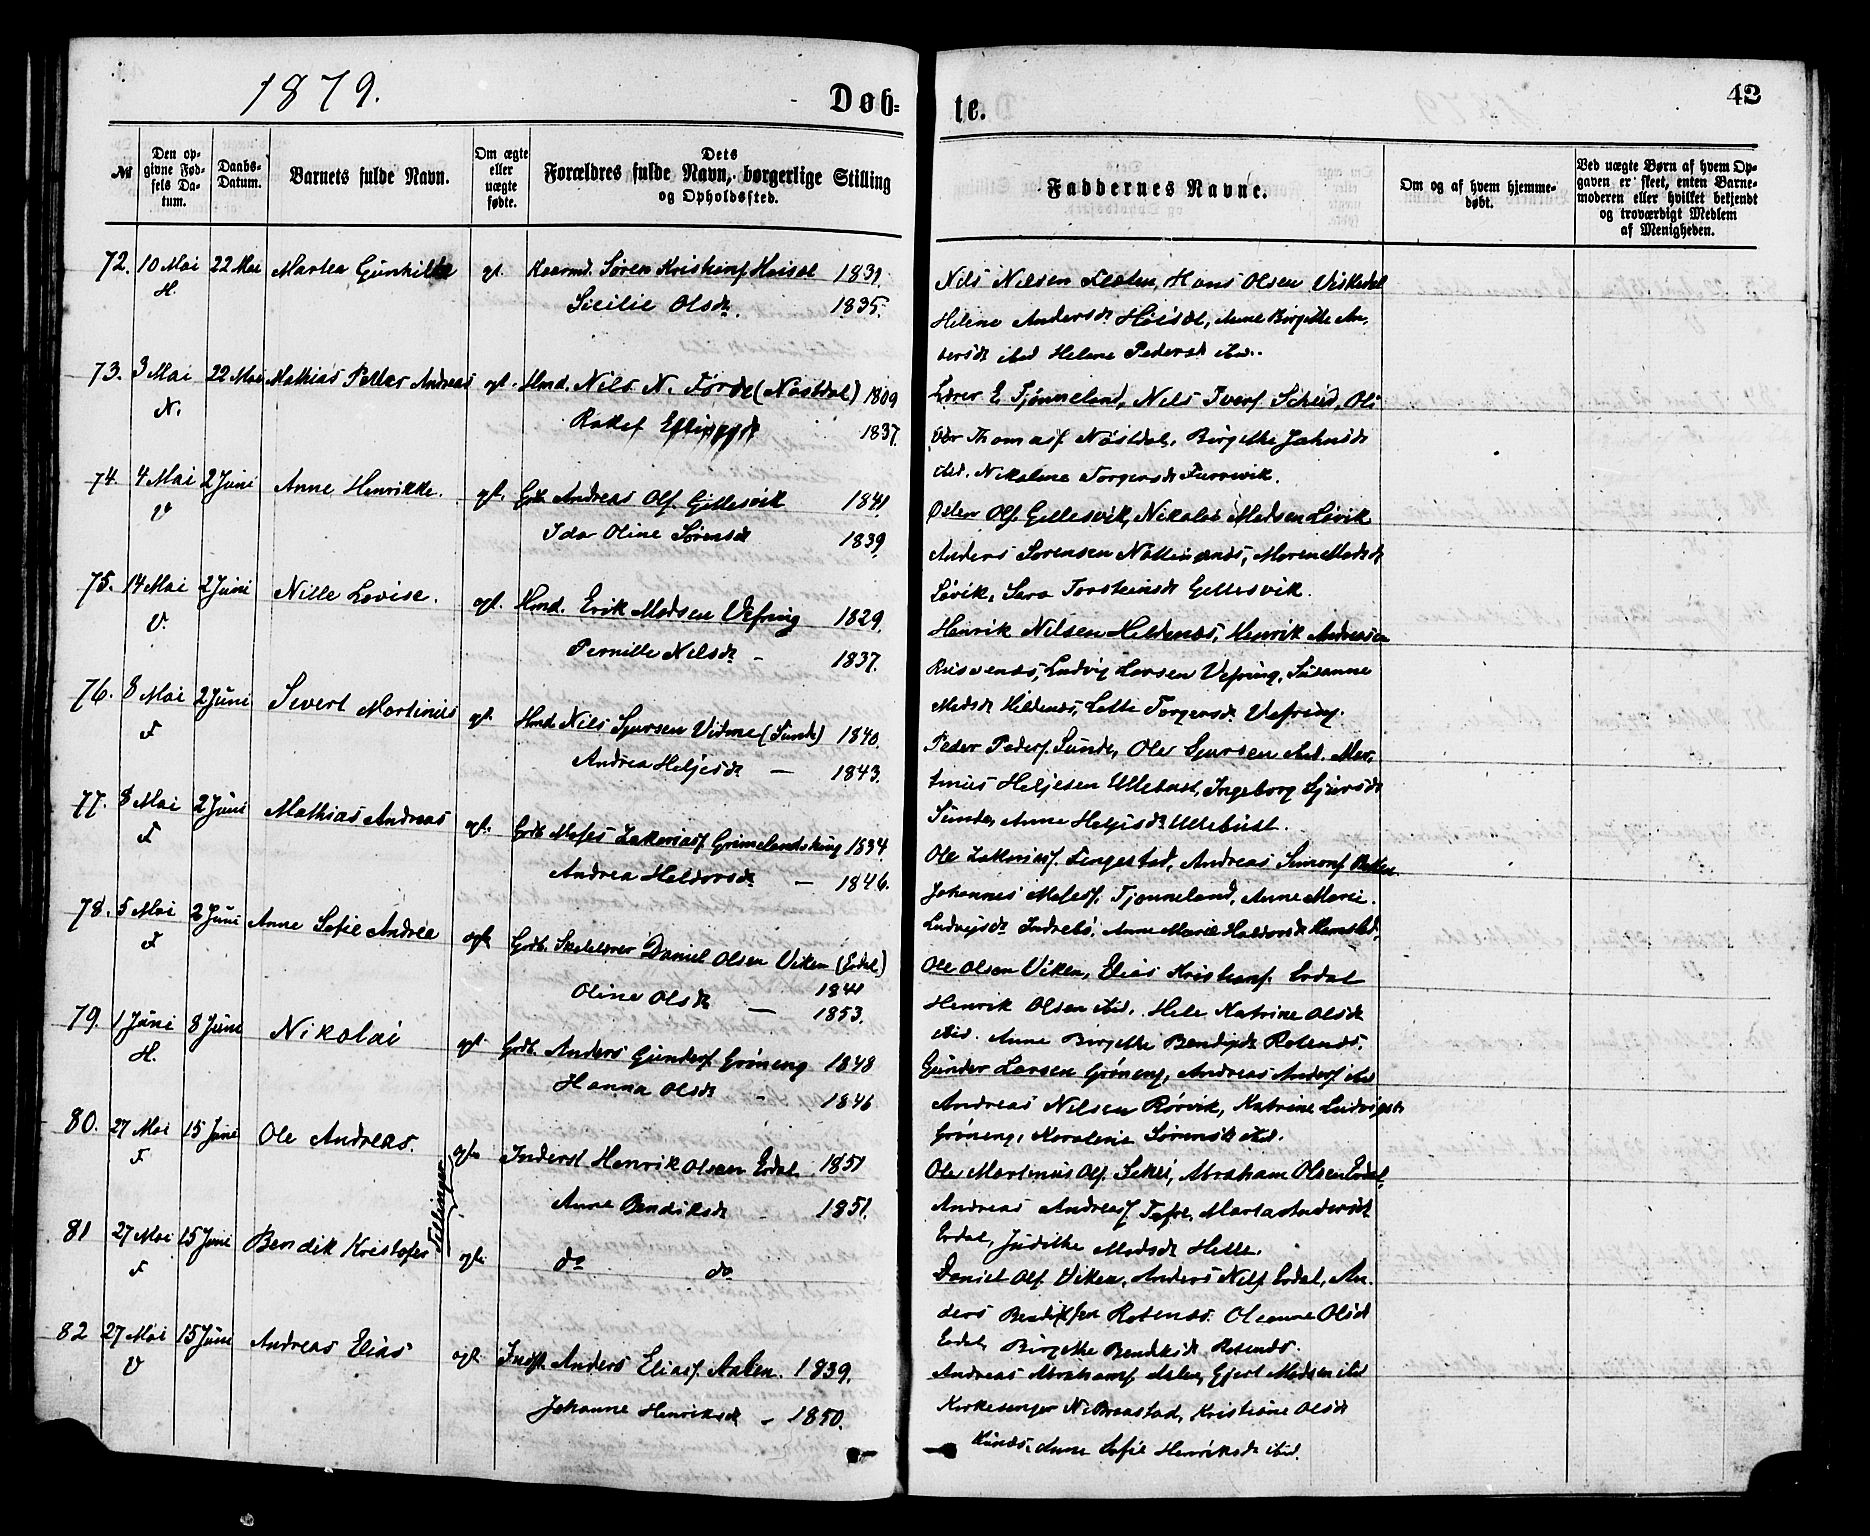 1879.
Døb-
te.
42
№
Den op-
givne Fød-
sels Da-
tum.
Daabs-
Datum.
Barnets fulde Navn.
Om ægte
eller
uægte
fødte.
Dets
Forældres fulde Navn, borgerlige Stilling
og Opholdssted.
Faddernes Navne.
Om og af hvem hjemme-
døbt.
Ved uægte Børn af hvem Op-
gaven er skeet, enten Barne-
moderen eller hvilket bekjendt
og troværdigt Medlem
af Menigheden.
72. 10 Mai 22 Mai Martea Gunhilde ægt.
H.
Søren Kristensf. Høisæt 1831
Sicilie Olsdr. 1835.
Nils Nilsen Hans Olsen
Helene Andersdr Høisæt, Anne Birgitte An-
dersdr ibd Helene Pedersdr ibd.
73. 3 Mai 22 Mai Mathias Petter Andreas ægt.
N.
Hmd. Nils N. Førde (Nøstdal) 1809
1837.
Lærer E. Tjønneland, Nils Oli-
ver Thomasf Nøstdal, Birgitte
ibd. Nikoline Torgersdr Furrevik.
74. 4 Mai 2 Juni Anne Henrikke. ægt.
V
Grdb. Andreas Olf. Gillesvik 1841
Ida Oline Sørensdr 1839
Peter Olf. Gillesvik, Nikolai Madsen Løvik
Anders Sørensen Maren Madsdr
Løvik, Sara Torsteinsdr Gillesvik.
75. 14 Mai 2 Juni Nille Lovise. ægt.
V.
Hmd. Erik Madsen Vefring 1829.
Pernille Nilsdr - 1837.
Henrik Nilsen Hildenes, Henrik Andreasen
Risenes, Ludvig Larsen Vefring, Susanne
Madsdr Hildenes, Lotte Torgersdr Vefring.
76. 8 Mai 2 Juni Sivert Martinus ægt.
F
Hmd Nils Sjursen Vidme (Sunde) 1840.
Andrea Heljesdr - 1843.
Peder Pedersf. Sunde, Ole Sjursen ibd. Mar-
tinus Heljesen Ullebust, Ingeborg Sjursdr
Sunde, Anne Heljesdr Ullebust.
77. 8 Mai 2 Juni Mathias Andreas ægt.
F
Grdb Moses Zakariasf. Grimelandsking 1834.
Andrea Haldorsdr - 1846.
Ole Zakariasf. Andreas Simonf. Bakken
Johannes Mosesf. Tjønneland, Anne Marie
Ludvigsdr Indrebø, Anne Marie Haldorsdr
78. 5 Mai 2 Juni Anne Sofie Andrea ægte
F
Grdb. Skolelærer Daniel Olsen Viken (Erdal)
1841
Oline Olsdr - 1853.
Ole Olsen Viken, Elias Kristensf. Erdal
Henrik Olsen ibd. Hele Katrine Olsdr
ibid. Anne Birgitte Bendiksdr Rotenes.
79. 1 Juni 8 Juni Nikolai ægt.
H.
Grdb. Anders Gundersf. Grøneng 1848
Hanna Olsdr - 1846
Gunder Larsen Grøneng, Andreas Andersf ibd
Andreas Nilsen Rørvik, Katrine Ludvigsdr
Grøneng, Sørensdr ibd.
80. 27 Mai 15 Juni Ole Andreas. ægte
F
Tvillinger
Inderst Henrik Olsen Erdal 1851
Anne Bendiksdr - 1851.
Ole Martinus Olf. Abraham Olsen Erdal,
Andreas Andreasf Marta Andersdr
Erdal, Judithe Madsdr Helle.
81 27 Mai 15 Juni Bendik Kristofer ægte
F
do do
Daniel Olf. Viken, Anders Nilsf. Erdal, An-
ders Bendiksen Rotenes. Oleanne Olsdr
Erdal, Birgitte Bendiksdr Rotenes.
82 27 Mai 15 Juni Andreas Elias ægt.
V
Indst Anders Eliasf. Aalen. 1839.
Johanne Henriksdr - 1850.
Andreas Abrahamsf. Aalen, Gjert Madsen ibd
Kirkesanger N. Kristine Olsdr
Anne Sofie Henriksdr ibid.